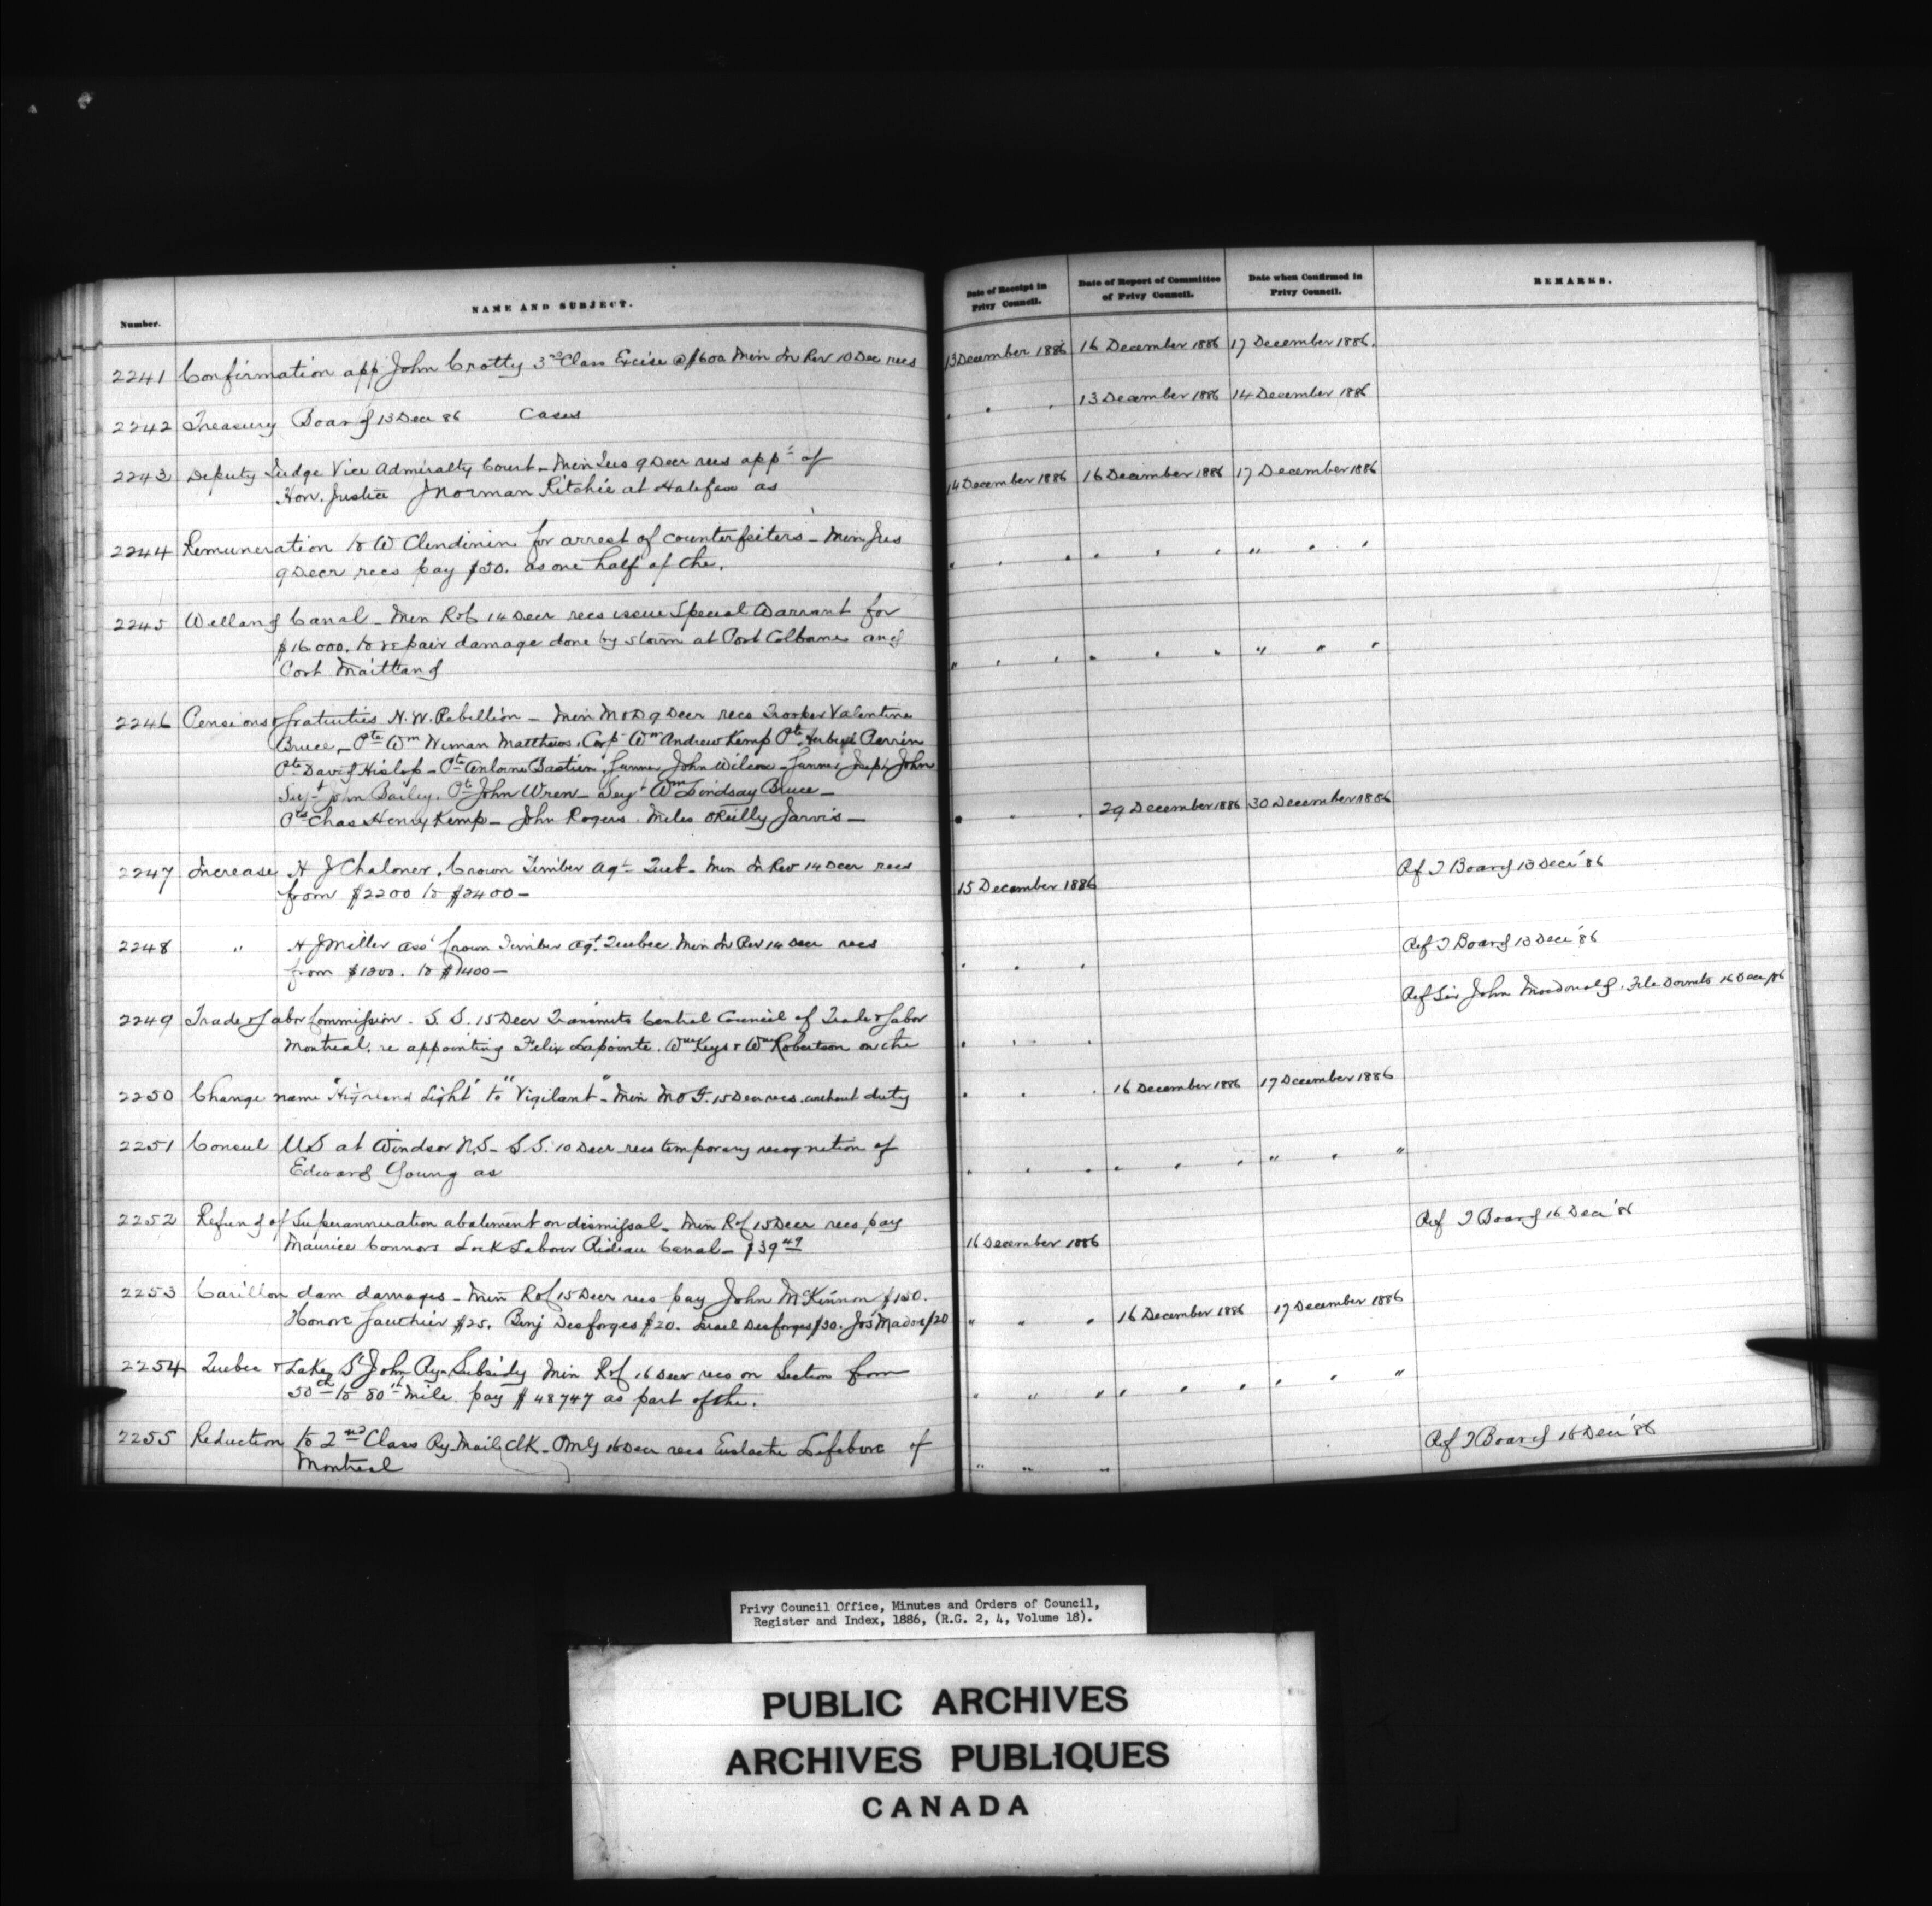 Number.
NAME AND SUBJECT.
Date of Receipt in Privy Council.
Date of Report of Committee of Privy Council.
Date when Confirmed in Privy Council.
REMARKS.
2241 Confirmation app John Crotty 3rd Class Excise @ $600 Min In Rev 10 Dec recs 13 December 1886 16 December 1886 17 December 1886.
2242 Treasury Board 13 Decr 86 Cases " " " 13 December 1886 14 December 1886
2243 Deputy Judge Vice Admiralty Court - Min Jus 9 Decr recs appt of
Hon. Justice J Norman Ritchie at Halifax as 14 December 1886 16 December 1886 17 December 1886
2244 Remuneration to W Clendinin for arrest of counterfeiters - Min Jus
9 Decr recs pay $50. as one half of the. " " " " " " " " "
2245 Welland Canal - Min R&C 14 Decr recs issue Special Warrant for
$16.000. to repair damage done by storm at Port Colborne and
Port Maitland " " " " " " " " "
2246 Pensions & gratuities N.W. Rebellion - Min M&D 9 Decr recs Trooper Valentine
Bruce - Pte Wm Wiman Matthews, Corpl Wm Andrew Kemp Pte Herbert Perrin
Pte David Hislop - Pte Antoine Bastien, Gunner John Wilcox - Gunner Joseph John
Sergt John Bailey. Pte John Wren - Sergt Wm Lindsay Bruce -
Pte Chas Henry Kemp - John Rogers. Miles O'Reilly Jarvis - " " " 29 December 1886 30 December 1886
2247 Increase H J Chaloner, Crown Timber Agt Queb. Min In Rev 14 Decr recs
from $2200 to $2400 - 15 December 1886 Ref T Board 15 Decr '86
2248 " H J Miller Asst Crown Timber Agt. Quebec. Min In Rev 14 Decr recs
from $1300. to $1400 - " " " Ref T Board 15 Decr '86
2249 Trade & Labor Commission. S.S. 15 Decr Transmits Central Council of Trade & Labor
Montreal, re appointing Felix Lapointe. Wm Keys & Wm Robertson on the " " " Ref Sir John Macdonald. 16 Decr/86
2250 Change name "Highland Light" to "Vigilant" - Min M&F. 15 Decr recs. without duty " " " 16 December 1886 17 December 1886
2251 Consul U.S at Windsor N.S - S.S. 10 Decr recs temporary recognition of
Edward Young as " " " " " " " " "
2252 Refund of Superannuation abatement on dismissal - Min R&C 15 Decr recs pay
Maurice Connors Lock Laborer Rideau Canal - $39 49 16 December 1886 Ref T Board 16 Decr '86
2253 Carillon dam damages - Min R&C 15 Decr recs pay John McKinnon $150.
Honore Gauthier $25. Benj Desforges $20. Israel Desforges $30. Jos Madore $20 " " " 16 December 1886 17 December 1886
2254 Quebec & Lake St John Ry - Subsidy Min R&C 16 Decr recs on Section from
50th to 80th mile. pay $48747 as part of the. " " " " " " " " "
2255 Reduction to 2nd Class Ry Mail Clk - PMG 16 Decr recs Eustache Lefebvre of
Montreal " " " Ref T Board 16 Decr '86
Privy Council Office, Minutes and Orders of Council,
Register and Index, 1886, (R.G. 2, 4, Volume 18).
PUBLIC ARCHIVES
ARCHIVES PUBLIQUES
CANADA